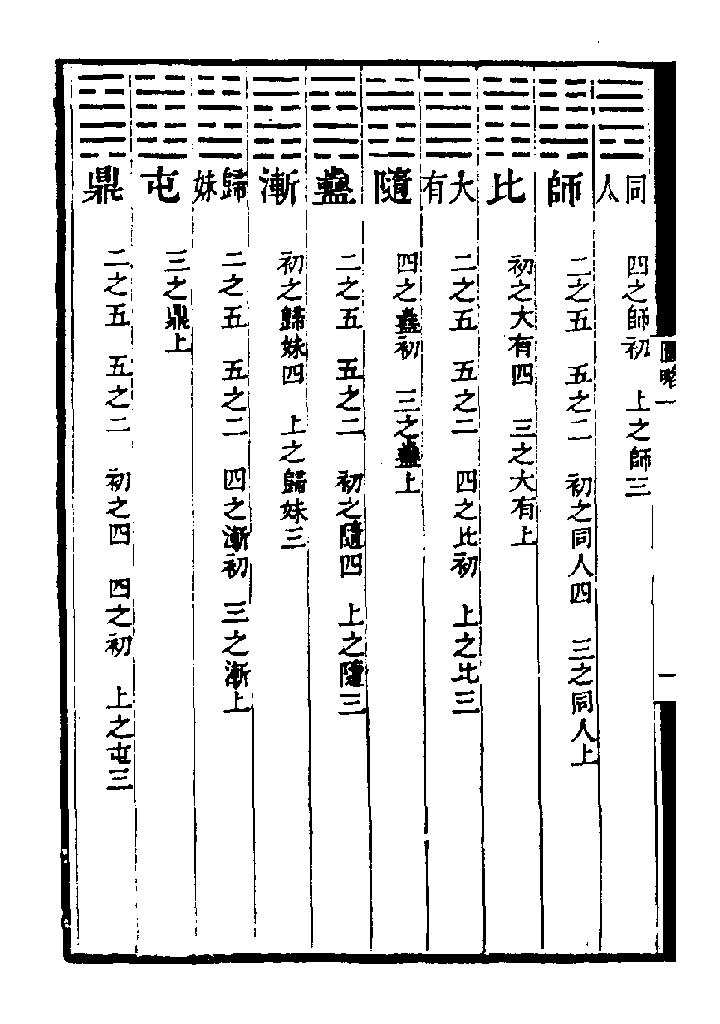 同人　四之師初　上之師三
師　二之五　五之二　初之同人四　三之同人上
比　初之大有四　三之大有上
大有　二之五　五之二　四之比初　上之比三
隨　四之蠱初　三之蠱上
蠱　二之五　五之二　初之隨四　上之隨三
漸　初之歸妹四　上之歸妹三
歸妹　二之五　五之二　四之漸初　三之漸上
屯　三之鼎上
鼎　二之五　五之二　初之四　四之初　上之屯三
圖略一
一